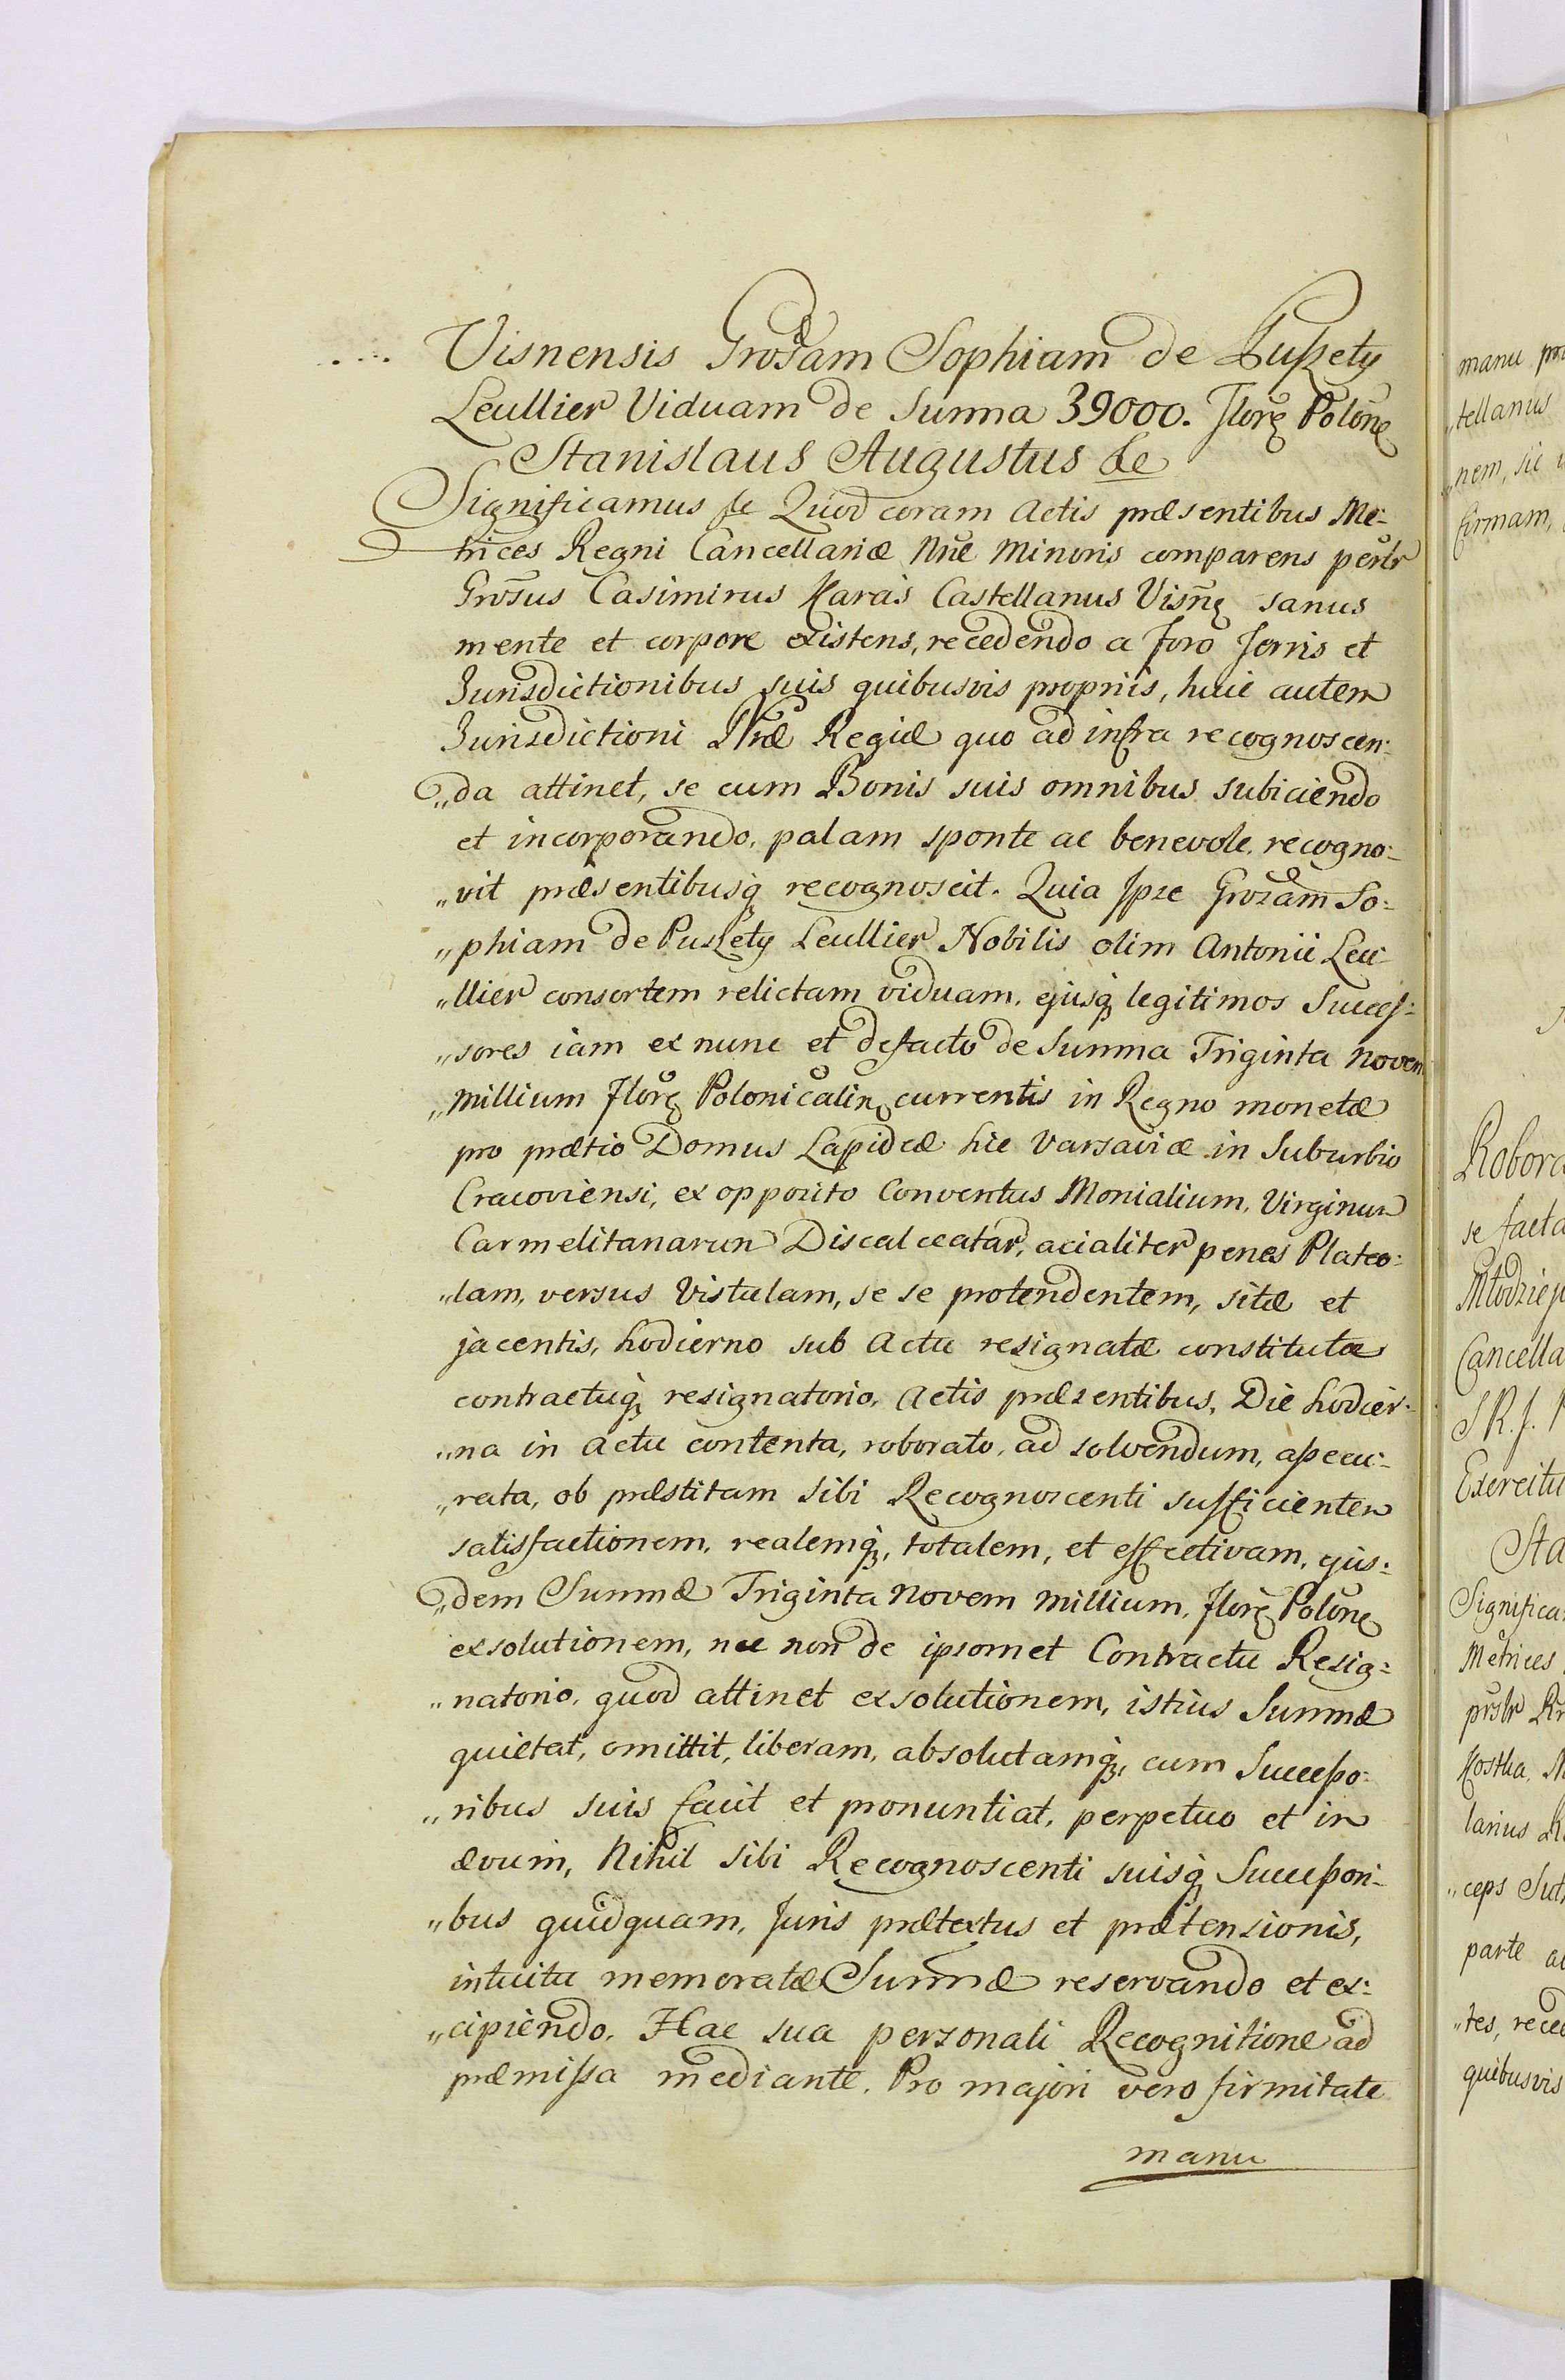 Visnensis Grosam Sophiam de Puszety
Leullier Viduam de Summa 39000. Flore Polone
Stanislaus Augustus &c
Significamus &c Quod coram Actis præsentibus Me:
trices Regni Cancellariæ Nrӕ Minoris comparens persłr
Grosus Casimirus Karaś Castellanus Visñe sanus
mente et corpore existens, recedendo a foro Terris et
Jurisdictionibus suis quibusvis propriis, huic autem
Jurisdictioni Nræ Regiæ quo ad infra recognoscen:
„da attinet, se cum Bonis suis omnibus subiciendo
et incorporando, palam sponte ac benevole, recogno:
„vit præsentibusq; recognoscit. Quia Ipse Grosam So:
„phiam de Puszety Leullier Nobilis olim Antonii Leu:
„llier consortem relictam viduam, ejusq; legitimos Succes:
„sores iam ex nunc et defacto de Summa Triginta Novem
„Millium Flore Polonicalin currentis in Regno monetæ
pro prætio Domus Lapideæ hic Varsaviæ in Suburbio
Cracoviensi, ex opposito Conventus Monialium, Virginum
Carmelitanarum Discalceatar, acialiter penes Plateo:
„lam, versus Vistulam, se se protendentem, sitæ et
jacentis, hodierno sub Actu resignatæ constitutæ
contractuq; resignatorio, Actis præsentibus, Die hodier:
„na in Actu contenta, roborato, ad solvendum, assecu:
„rata, ob præstitam Sibi Recognoscenti sufficientem
satisfactionem, realemq;, totalem, et effectivam, ejus:
„dem Summæ Triginta Novem Millium, Flore Polone
exsolutionem, nec non de ipsomet Contractu Resig:
„natorio, quod attinet exsolutionem, istius Summæ
quietat, omittit, liberam, absolutamq;, cum Successo:
„ribus suis facit et pronuntiat, perpetuo et in
ævum, Nihil Sibi Recognoscenti suisq; Successori:
„bus quidquam, Juris prætextus et prætensionis,
intuitu memoratæ Summæ reservando et ex:
„cipiendo. Hac sua personali Recognitione ad
præmissa mediante. Pro majori vero firmitate
manu
manu
„tellanus
„nem, sic
firmam,
Robora
se facta
Cancella
S R. J.
Exercitu
Sta
Significa
Metrices
Kostka,
larius
„ceps
parte
„tes,
quibusvis